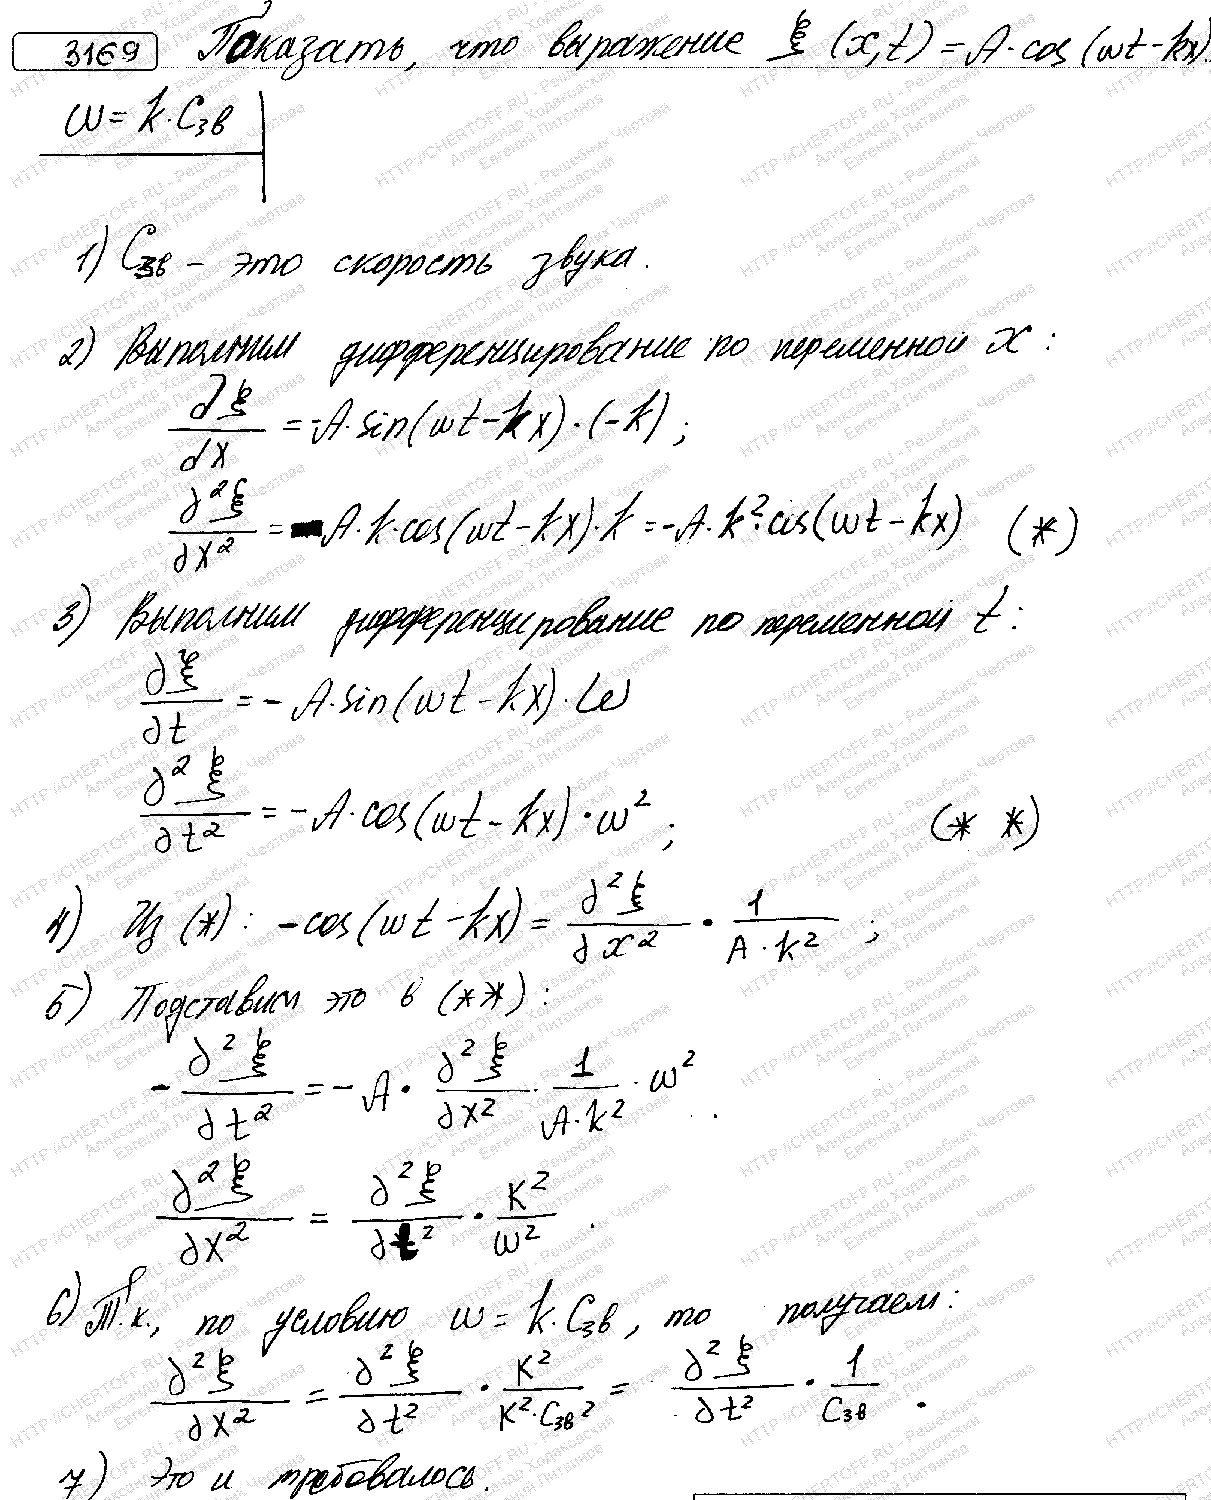 3169 Показать, что выражение ξ(x,t) = A·cos(ωt-kx).
ω = k·Cзв
1) Cзв - это скорость звука.
2) Выполним дифференцирование по переменной x:
∂ξ/∂x = -A·sin(ωt-kx)·(-k);
∂²ξ/∂x² = -A·k·cos(ωt-kx)·k = -A·k²·cos(ωt-kx) (*)
3) Выполним дифференцирование по переменной t:
∂ξ/∂t = -A·sin(ωt-kx)·ω
∂²ξ/∂t² = -A·cos(ωt-kx)·ω²; (* *)
4) Из (*): -cos(ωt-kx) = ∂²ξ/∂x² · 1/(A·k²);
5) Подставим это в (**):
-∂²ξ/∂t² = -A·∂²ξ/∂x² · 1/(A·k²) · ω².
∂²ξ/∂x² = ∂²ξ/∂t² · K²/ω².
6) Т.к., по условию ω = k·Cзв, то получаем:
∂²ξ/∂x² = ∂²ξ/∂t² · K²/(K²·Cзв²) = ∂²ξ/∂t² · 1/Cзв.
7) Это и требовалось.
HTTP://CHERTOFF.RU - Решебник Чертова
Александр Ходаковский
Евгений Литвинов